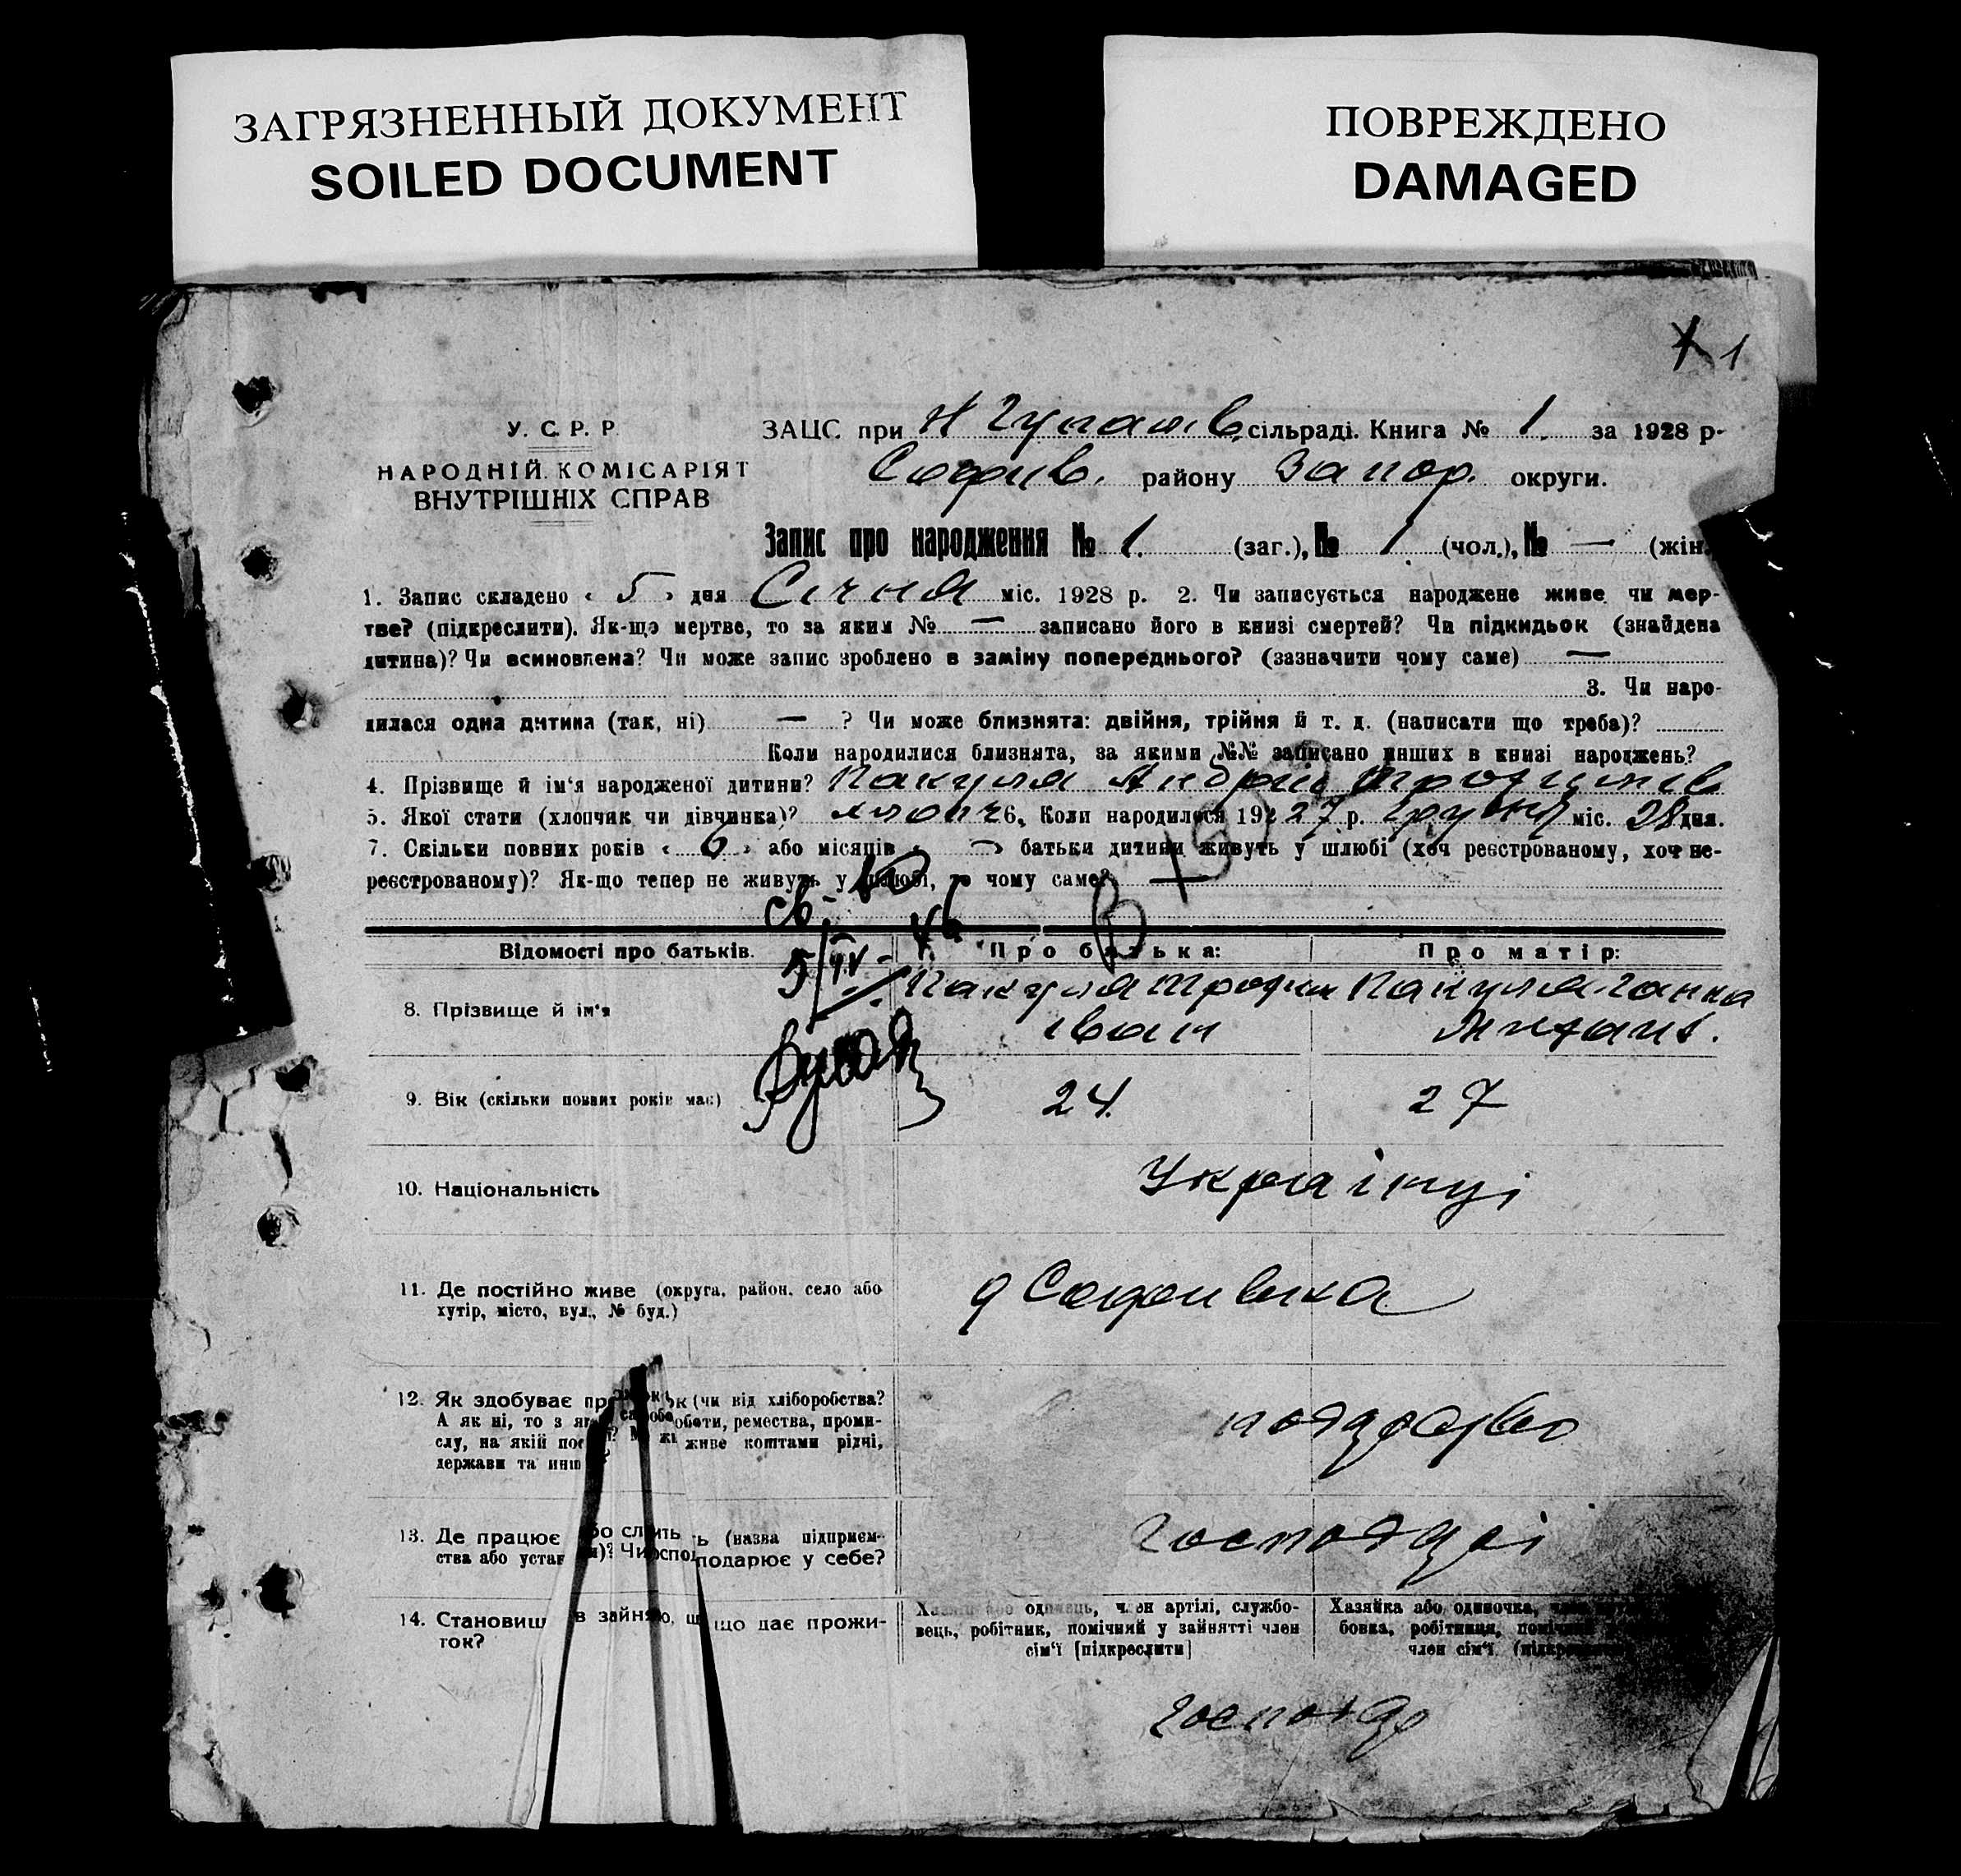 ЗАГРЯЗНЕННЫЙ ДОКУМЕНТ
SOILED DOCUMENT
ПОВРЕЖДЕНО
DAMAGED
1
У. С. Р. Р.
НАРОДНІЙ КОМІСАРІЯТ
ВНУТРІШНІХ СПРАВ
ЗАЦС при Н Гупалів. сільраді. Книга № 1. за 1928 р.
Софиів. району Запор. округи.
Запис про народження № 1. (заг.), № 1 (чол.), № — (жін.
1. Запис складено « 5 » дня Січня міс. 1928 р. 2. Чи записується народжене живе чи мер-
тве? (підкреслити). Як-що мертве, то за яким № — записано його в книзі смертей? Чи підкидьок (знайдена
дитина)? Чи всиновлена? Чи може запис зроблено в заміну попереднього? (зазначити чому саме) —
3. Чи наро-
дилася одна дитина (так, ні) — ? Чи може близнята: двійня, трійня й т. д. (написати що треба)?
Коли народилися близнята, за якими №№ записано инших в книзі народжень?
4. Прізвище й ім'я народженої дитини? Пакуля Андрій Трохимів
5. Якої стати (хлопчик чи дівчинка)? хлопч 6. Коли народилося 192 27 р. грудня міс. 28 дня.
7. Скільки повних років « 6 » або місяців « » батьки дитини живуть у шлюбі (хоч реєстрованому, хоч не-
реєстрованому)? Як-що тепер не живуть у шлюбі, то чому саме? —
Відомості про батьків.
Про батька:
Про матір:
8. Прізвище й ім'я
Пакуля Трохим
Іван
Пакуля Ганка
9. Вік (скільки повних років має)
24
27
10. Національність
Українці
11. Де постійно живе (округа, район, село або
хутір, місто, вул., № буд.)
Софиівка
12. Як здобуває пр ок (чи від хліборобства?
А як ні, то з як оботи, ремества, проми-
слу, на якій пос живе коштами рідні,
держави та инш
13. Де працює або слу ть (назва підприєм-
ства або устан Чи подарює у себе?
14. Становищ в зайня , що дає прожи-
ток?
Хазяїн або одинець, член артілі, службо-
вець, робітник, помічний у зайнятті член
сім'ї [підкреслити]
Хазяйка або одиночка,
бовка, робітниця, помічний
член сім'ї.